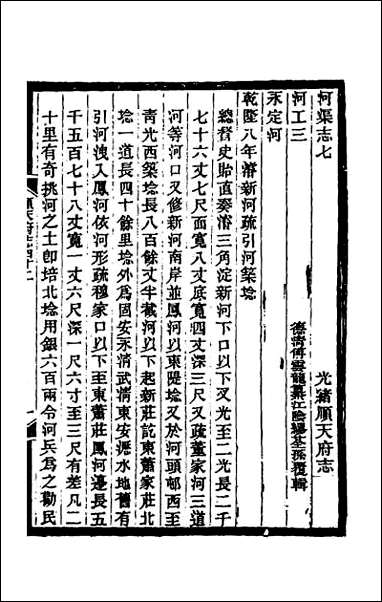 河渠志七
光緒順天府志
河工三
德清傅雲龍纂江陰繆荃孫覆輯
永定河
乾隆八年濬新河疏引河築埝
總督史貽直奏濬三角淀新河下口以下叉光至二光長二千
七十六丈七尺面寬八丈底寬四丈深三尺又疏董家河三道
河等河口又修新河南岸並鳳河以東隄埝又於河頭邨西至
青光西築埝長八百餘丈半截河以下起新莊訖東蕭家莊北
埝一道長四十餘里埝外爲固安永清武清東安瀝水地舊有
引河洩入鳳河依河形疏穆家口以下至東蕭莊鳳河邊長五
千五百七十八丈寬一丈六尺深一尺六寸至三尺有差凡二
十里有奇挑河之土卽培北埝用銀六百兩令河兵爲之勸民